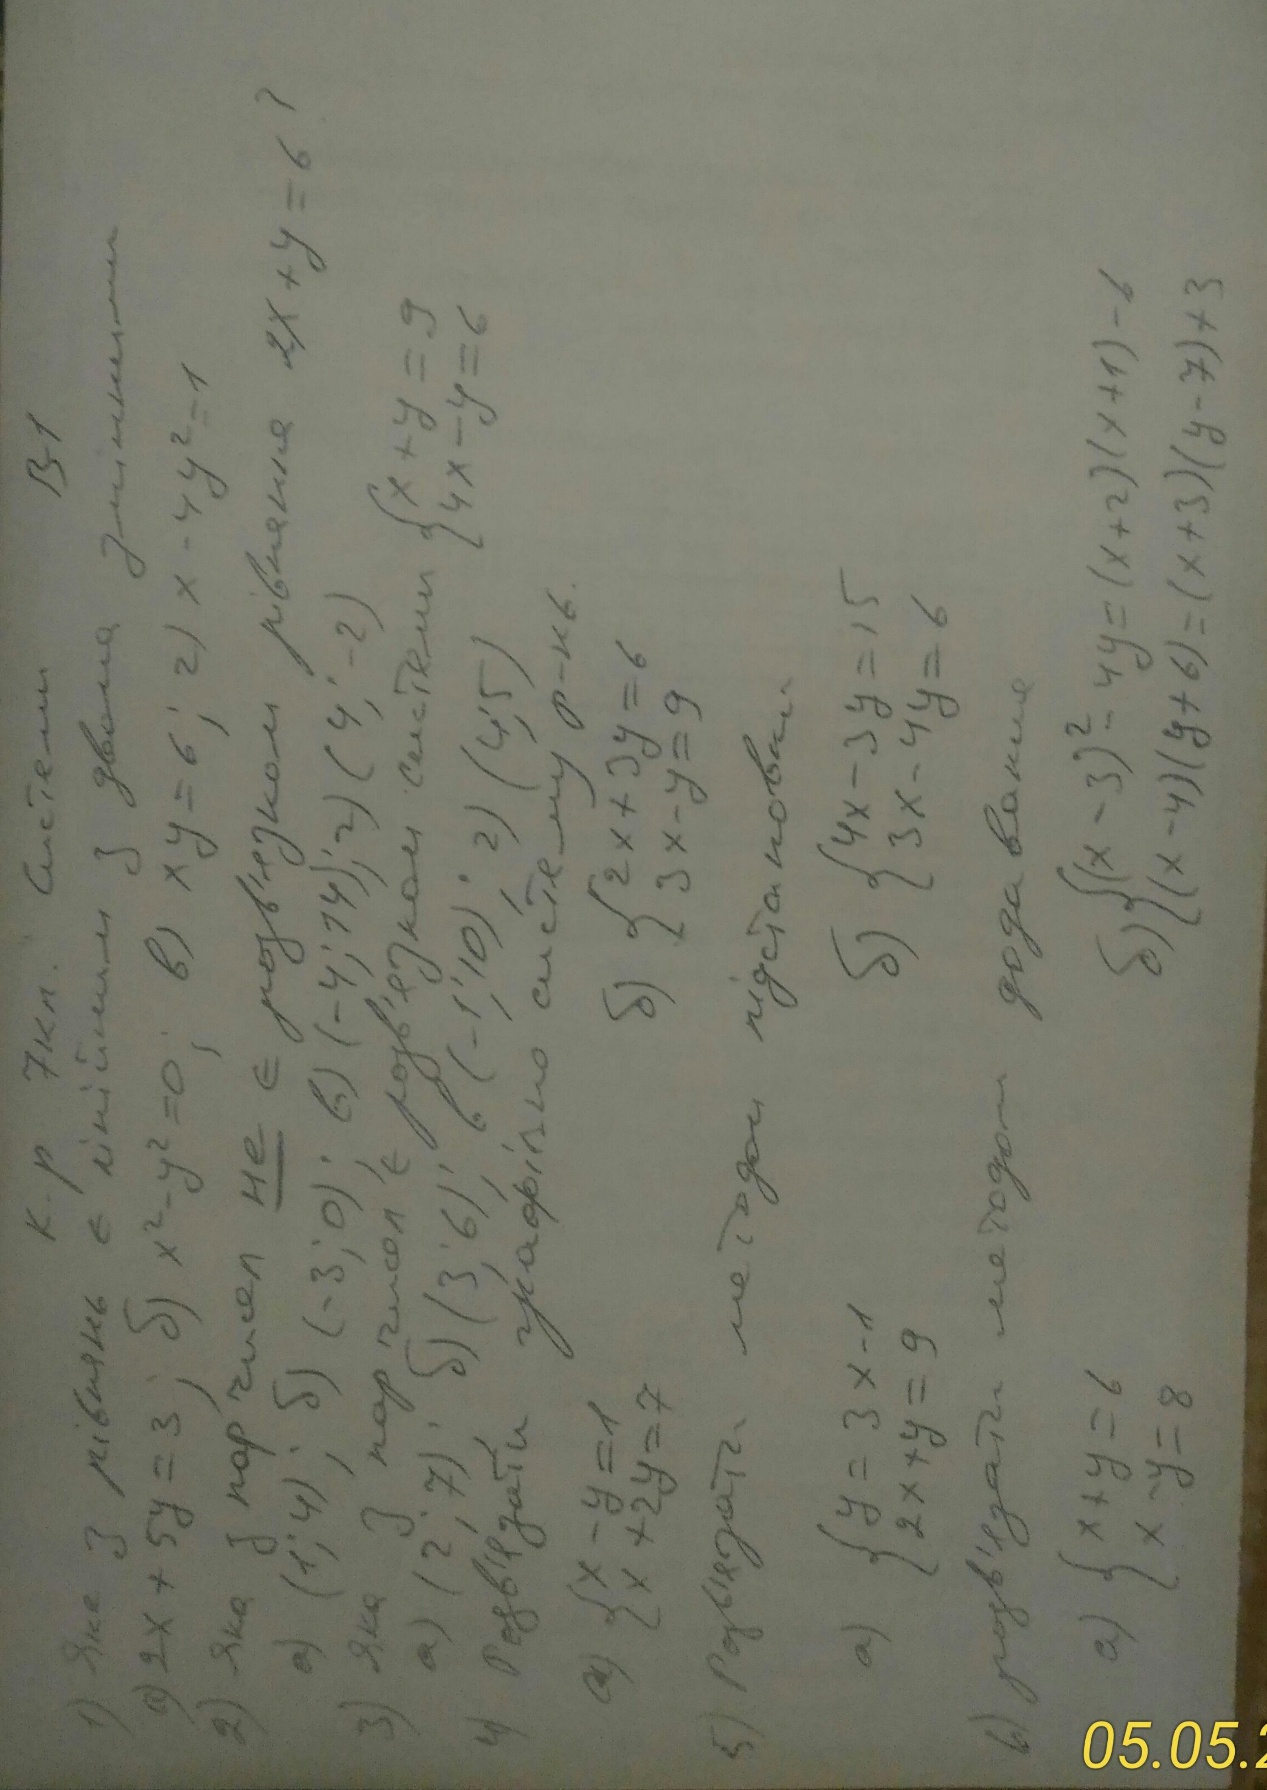 к.р 7кл. Системи В-1
1) Яке з рівнянь є лінійним з двома змінними
а) 2x + 5y = 3; б) x² - y² = 0; в) xy = 6; г) x - 4y² = 1
2) Яка з пар чисел не є розв'язком рівняння 2x + y = 6?
а) (1; 4); б) (-3; 0); в) (-4; 14); г) (4; -2)
3) Яка з пар чисел є розв'язком системи { x + y = 9
4x - y = 6
а) (2; 7); б) (3; 6); в (-1; 10); г) (4; 5)
4) Розв'язати графічно систему р-нь.
а) { x - y = 1 б) { 2x + 3y = 6
x + 2y = 7 3x - y = 9
5) Розв'язати методом підстановки
а) { y = 3x - 1 б) { 4x - 3y = 15
2x + y = 9 3x - 4y = 6
6) розв'язати методом додавання
а) { x + y = 6 б) { (x - 3)² - 4y = (x + 2)(x + 1) - 6
x - y = 8 (x - 4)(y + 6) = (x + 3)(y - 7) + 3